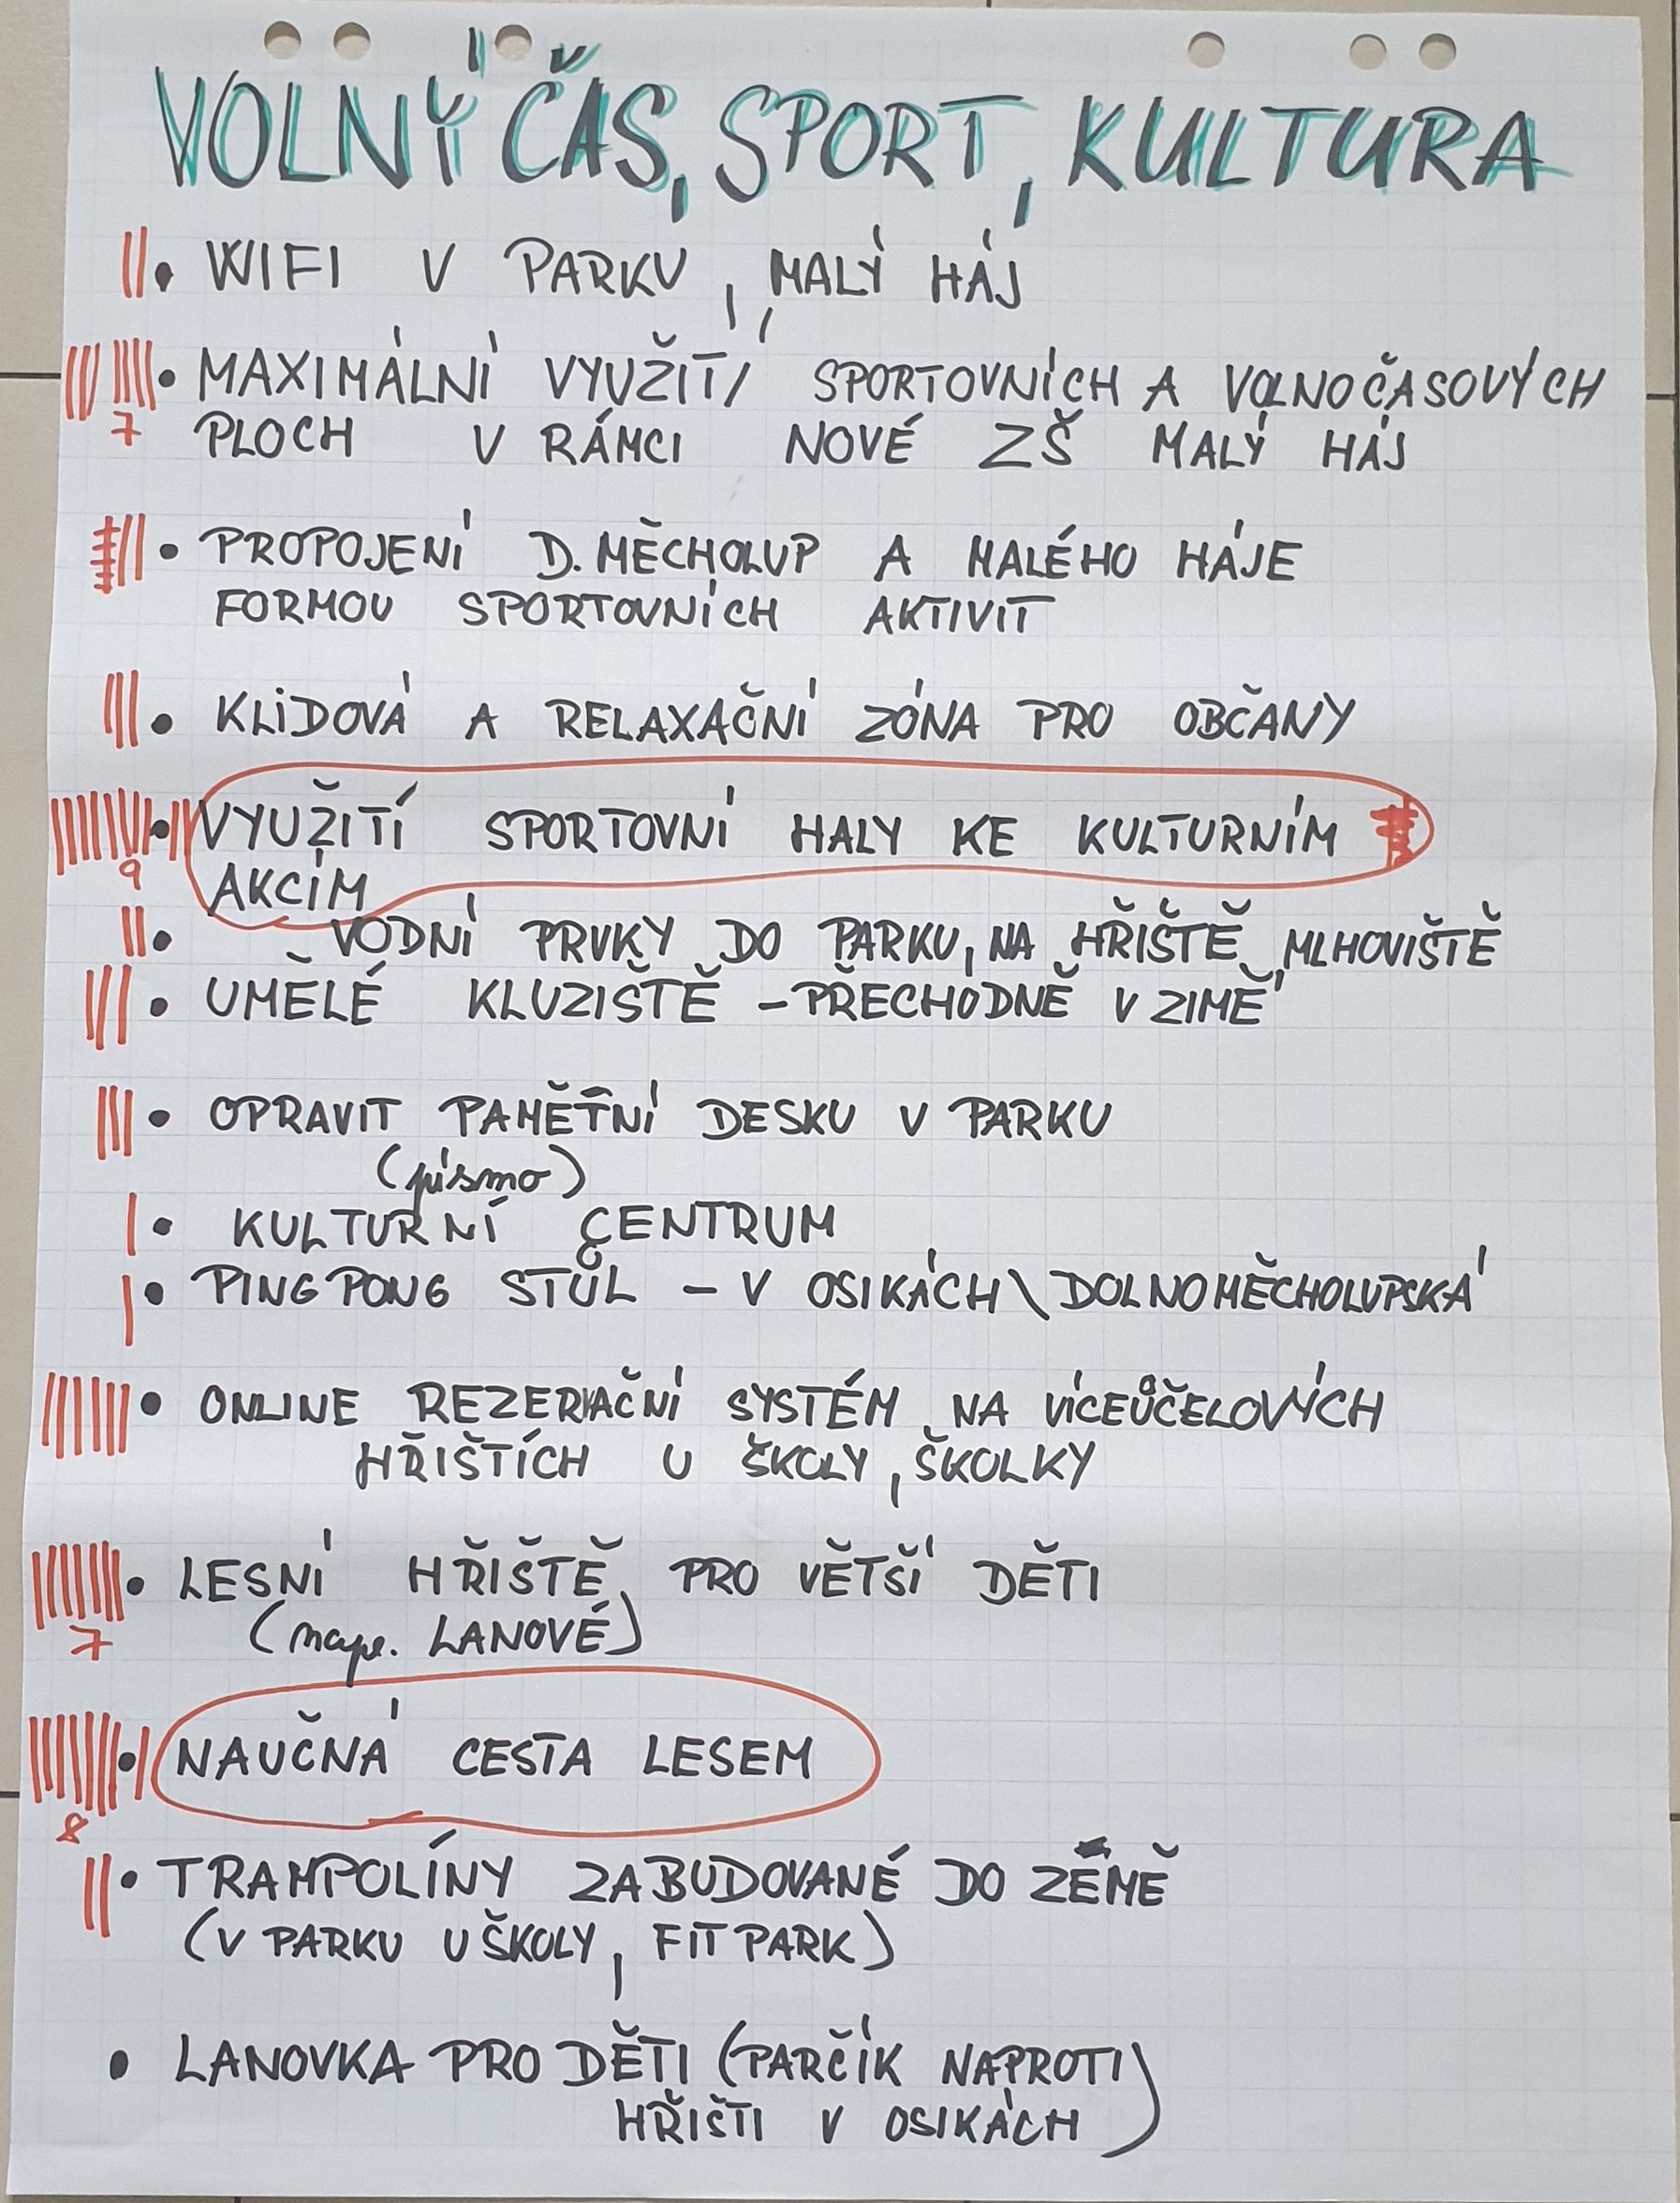 VOLNÝ ČAS, SPORT, KULTURA
• WIFI V PARKU, MALÝ HÁJ
• MAXIMÁLNÍ VYUŽITÍ SPORTOVNÍCH A VOLNOČASOVÝCH
7 PLOCH V RÁMCI NOVÉ ZŠ MALÝ HÁJ
• PROPOJENÍ D. MĚCHOLUP A MALÉHO HÁJE
FORMOU SPORTOVNÍCH AKTIVIT
• KLIDOVÁ A RELAXAČNÍ ZÓNA PRO OBČANY
• VYUŽITÍ SPORTOVNÍ HALY KE KULTURNÍM
9 AKCÍM
• VODNÍ PRVKY DO PARKU, NA HŘIŠTĚ, MLHOVIŠTĚ
• UMĚLÉ KLUZIŠTĚ - PŘECHODNĚ V ZIMĚ
• OPRAVIT PAMĚTNÍ DESKU V PARKU
(písmo)
• KULTURNÍ CENTRUM
• PINGPONG STŮL - V OSIKÁCH \ DOLNOMĚCHOLUPSKÁ
• ONLINE REZERVAČNÍ SYSTÉM NA VÍCEÚČELOVÝCH
HŘIŠTÍCH U ŠKOLY, ŠKOLKY
• LESNÍ HŘIŠTĚ PRO VĚTŠÍ DĚTI
7 (např. LANOVÉ)
• NAUČNÁ CESTA LESEM
8
• TRAMPOLÍNY ZABUDOVANÉ DO ZEMĚ
(V PARKU U ŠKOLY, FITPARK)
• LANOVKA PRO DĚTI (PARČÍK NAPROTI
HŘIŠTI V OSIKÁCH)